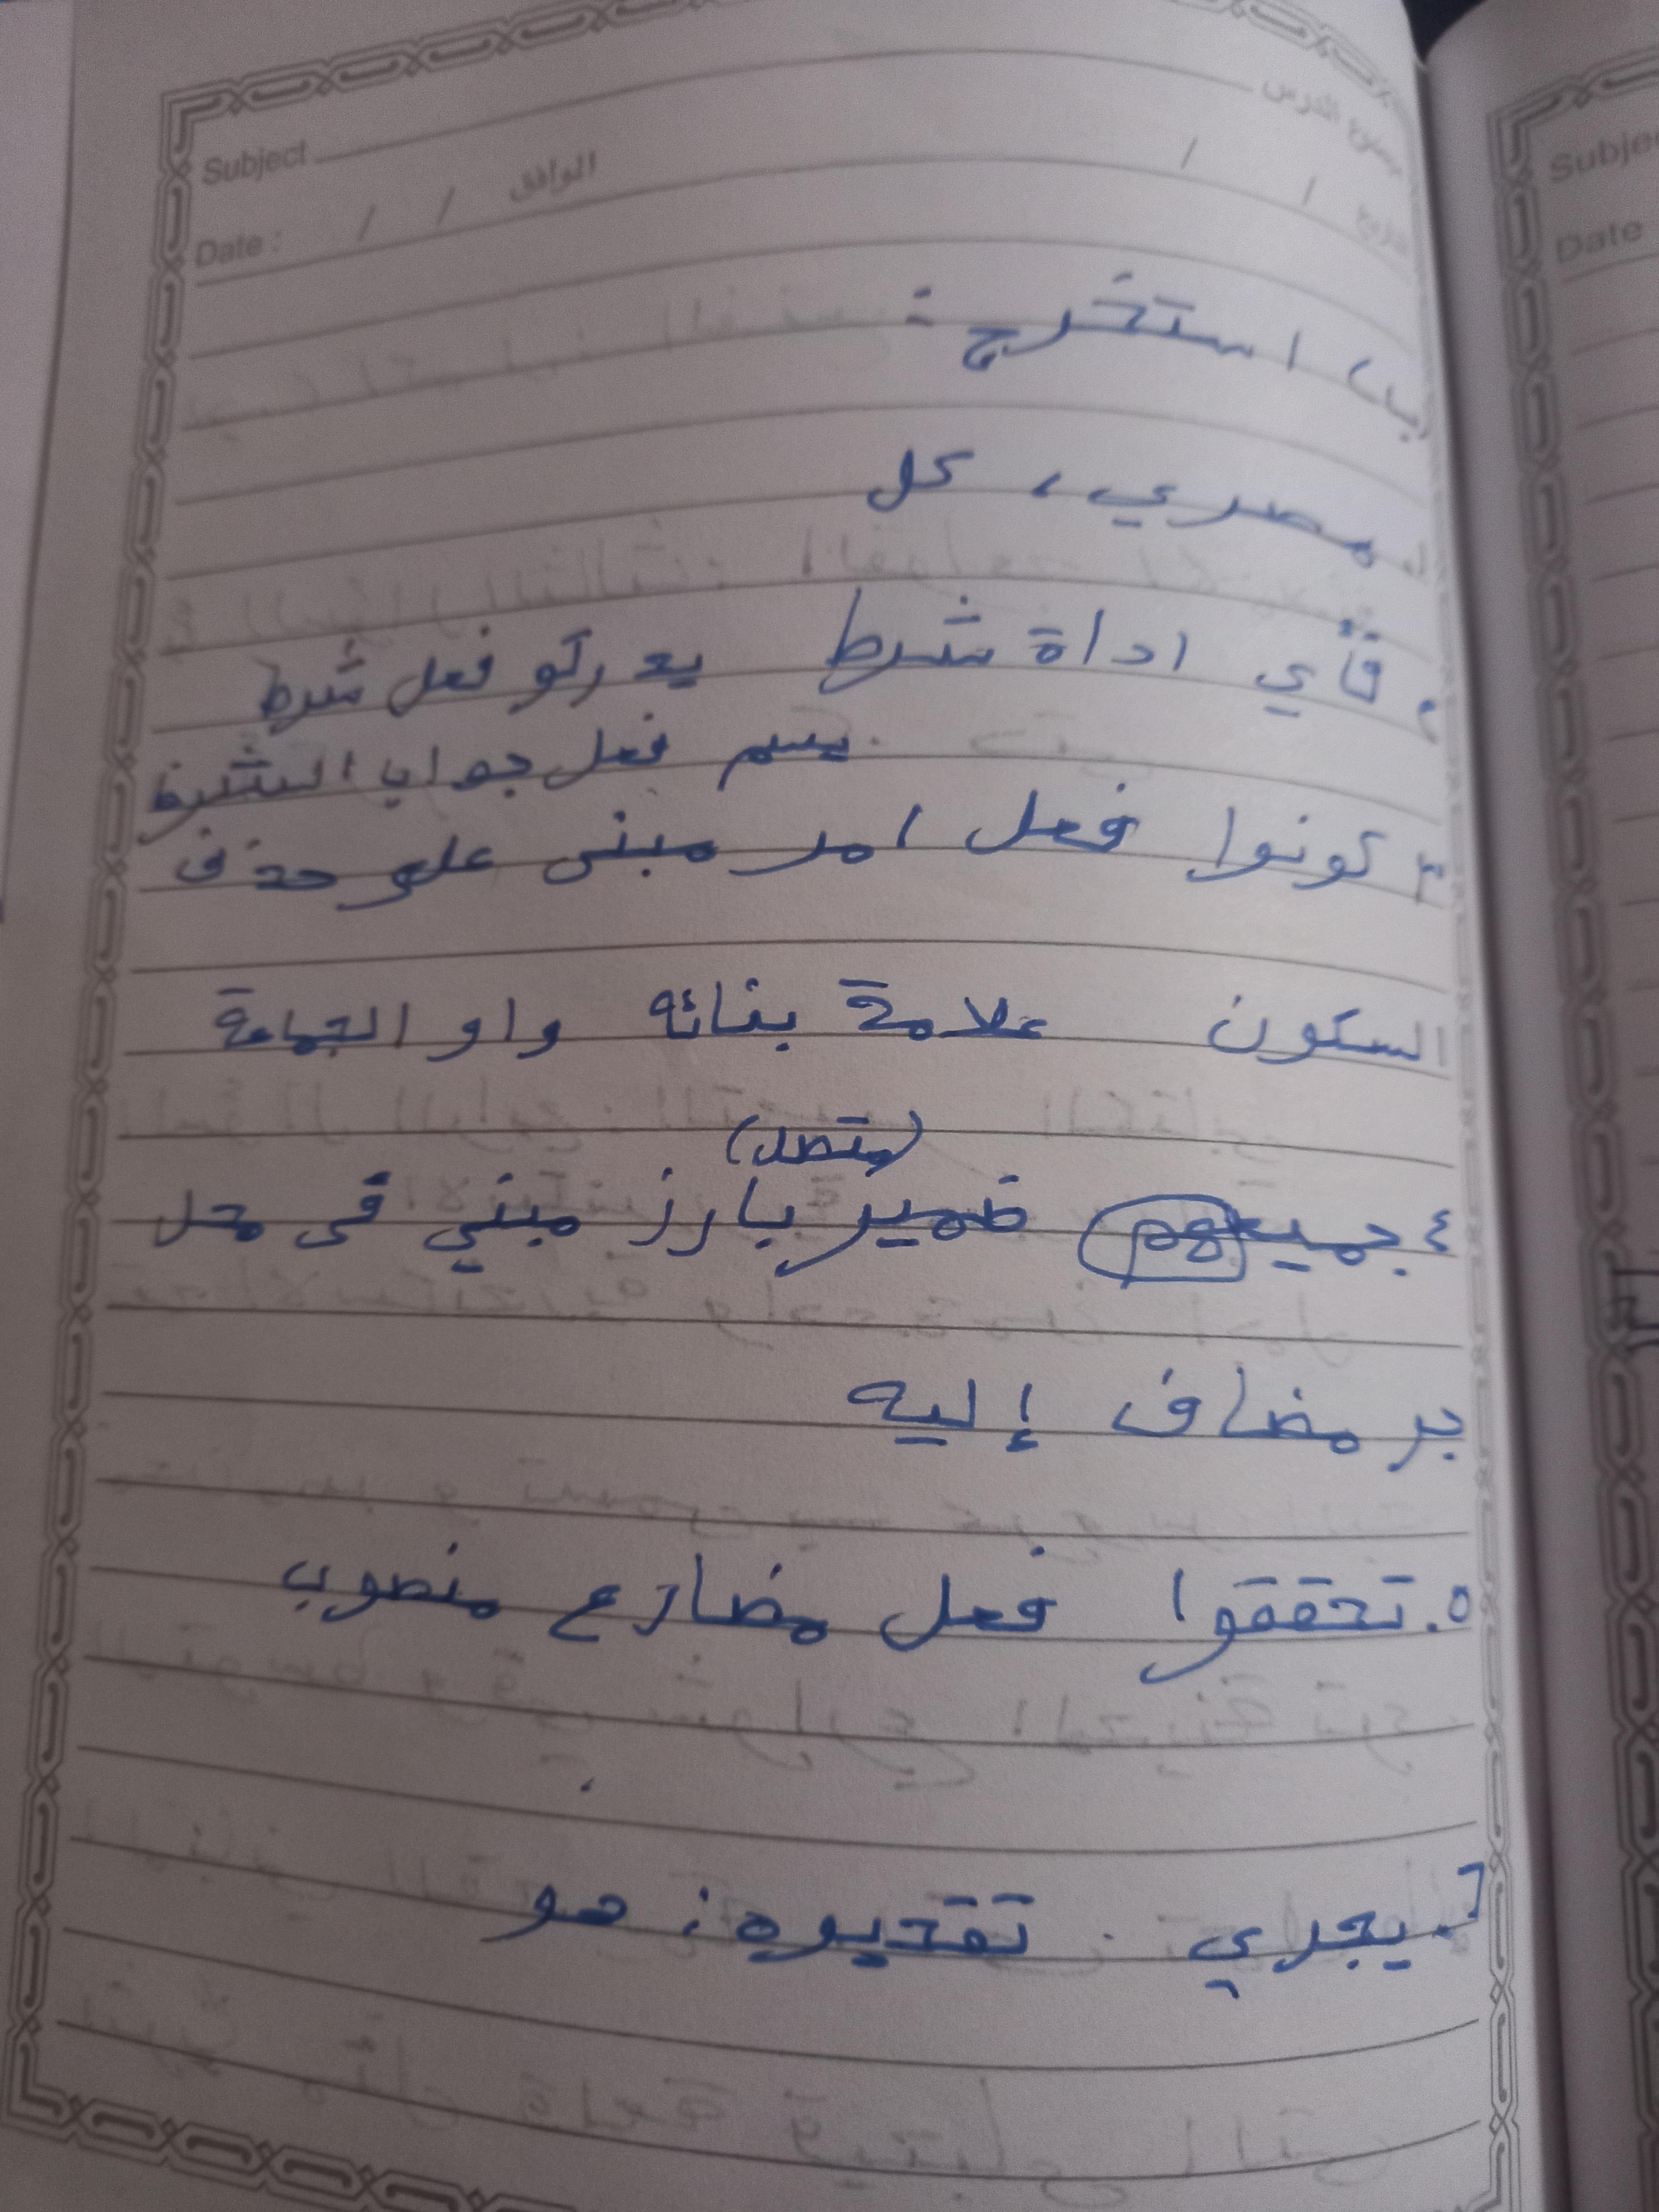 Subject موضوع الدرس
Date : / / الموافق / / تاريخ
ب) استخرج :
١ مصري ، كل
٢. فأي اداة شرط يدركو فعل شرط
يسم فعل جواب الشرط
٣ كونوا فعل امر مبنى على حذف
السكون علامة بنائه واو الجماعة
(متصل)
٤ جميعهم ضمير بارز مبني فى محل
جر مضاف إليه
٥. تحققوا فعل مضارع منصوب
٦. يجري . تقديره : هو
Subje
Date